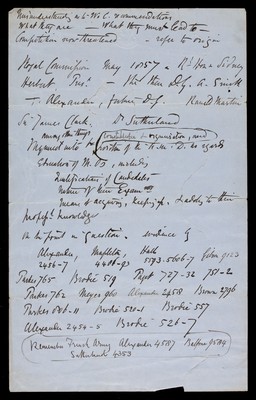 Misunderstanding as to R.C. recommendations
What they are — What they must lead to —
Competition now threatened — refer to origin
Royal Commission May 1857 — Rt Hon Sidney
Herbert Presᵗ — The then D.G. A. Smith
T. Alexander, future D.G. Ranald Martin
Sir James Clark. Dr Sutherland
among other things
Inquired into the constitution & organisation, and
of the A.M.D. as regards
Education of M.O.s, including
Qualifications of Candidates
Nature of their Exam
Means of acquiring, keeping up, & adding to their
Profesˡ knowledge
On the point in question. evidence of
Alexander, Mapleton,
2456-7 5593.5606-7 Gibson 9123
Parkes 765 Brodie 519 Paget 727-32 751-2
Parkes 762 Meyer 960 Alexander 2458 Brown 2796
Brodie 520-1 Brodie 557
Alexander 2454-5 Brodie 526-7
Remember French Army Alexander 4587 Balfour 9584
Sutherland 4353